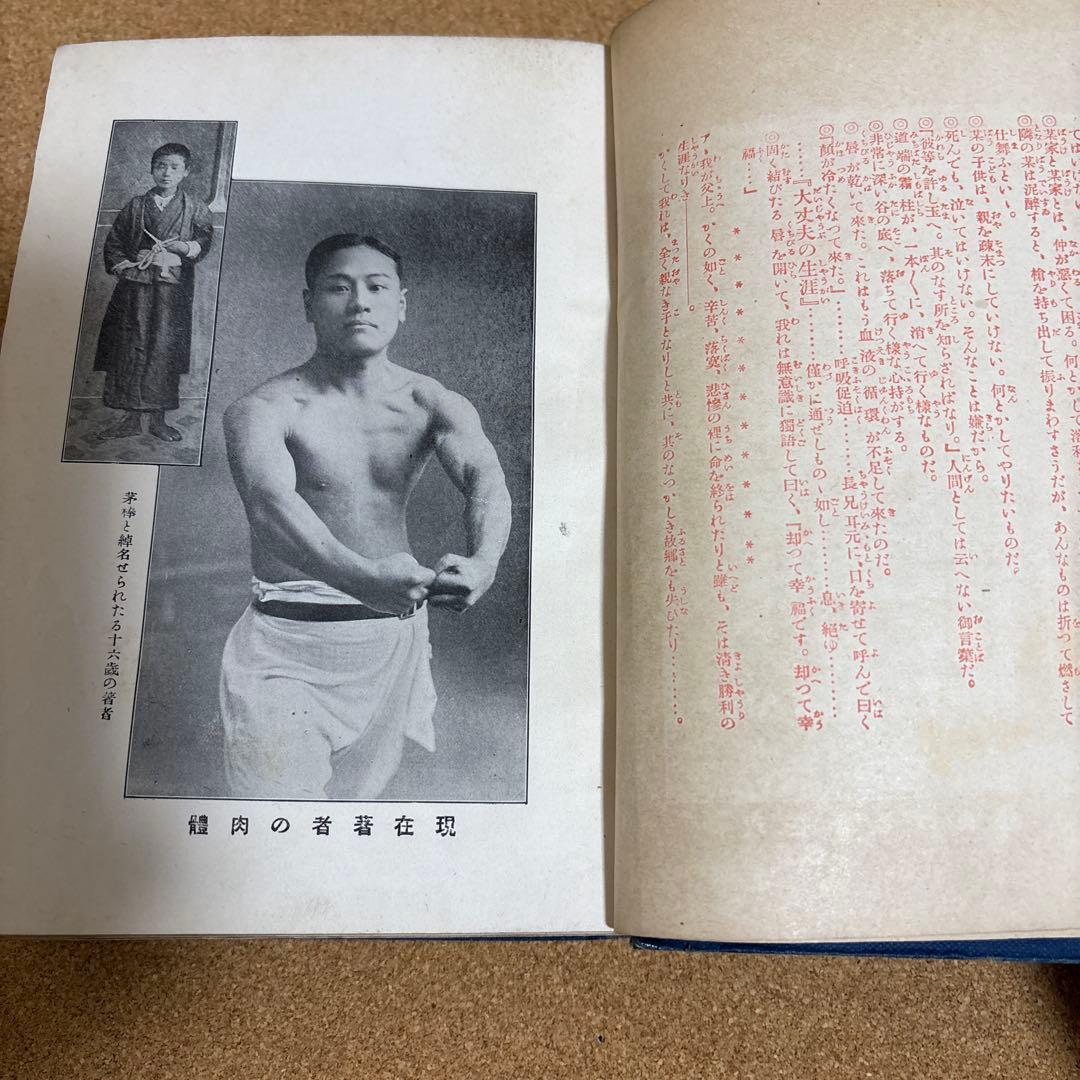 てはいけない。
◎某家と某家とは、仲が悪くて困る。何とかして
◎隣の某は泥醉すると、槍を持ち出して振りまわすさうだが、あんなものは折つて燃さして
仕舞ふといゝ。
◎某の子供は、親を疎末にしていけない。何とかしてやりたいものだ。
◎死んでも、泣いてはいけない。そんなことは嫌だから。
◎『彼等を許し玉へ。其のなす所を知らざればなり。』人間としては云へない御言葉だ。
◎道端の霜柱が、一本〱に、消へて行く樣なものだ。
◎非常に深い谷の底へ、落ちて行く樣な心持がする。
◎唇が乾いて來た。これはもう血液の循環が不足して來たのだ。
◎『顏が冷たくなつて來た。』………呼吸促迫………長兄耳元に、口を寄せて呼んで曰く
……『大丈夫の生涯』………僅かに通ぜしものゝ如し………息、絕ゆ………
◎固く結びたる唇を開いて、我れは無意識に獨語して曰く、『却つて幸福です。却つて幸
福…』
* * * * * * * * * * * *
アヽ我が父上。かくの如く、辛苦、落寞、悲慘の裡に命を終られたりと雖も、そは淸き勝利の
生涯なりき――――。
かくして我れは、全く親なき子となりしと共に、其のなつかしき故鄕をも失ひたり………。
現在著者の肉體
茅棒と綽名せられたる十六歲の著者